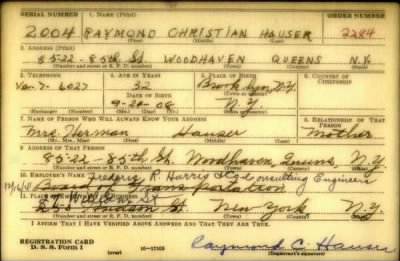 SERIAL NUMBER 1. NAME (Print) ORDER NUMBER (Print)
2004 RAYMOND CHRISTIAN HAUSER 2284
(First) (Middle) (Last)
2. ADDRESS (Print)
85-22-85th St. WOODHAVEN QUEENS N.Y.
(Number and street or R. F. D. number) (Town) (County) (State)
3. TELEPHONE 4. AGE IN YEARS 5. PLACE OF BIRTH 6. COUNTRY OF CITIZENSHIP
32 Brooklyn N.Y.
DATE OF BIRTH
7-6027 9-20-08 N.Y.
(Exchange) (Number) (Mo.) (Day) (Yr.) (State or country)
7. NAME OF PERSON WHO WILL ALWAYS KNOW YOUR ADDRESS 8. RELATIONSHIP OF THAT PERSON
Mrs. Herman Hauser Mother
(Mr., Mrs., Miss) (First) (Middle) (Last)
9. ADDRESS OF THAT PERSON
85-22-85th St. Woodhaven, Queens, N.Y.
(Number and street or R. F. D. number) (Town) (County) (State)
10. EMPLOYER'S NAME Frederic R. Harris Consulting Engineers
Board of Transportation
11. PLACE OF EMPLOYMENT OR BUSINESS
Hudson St. New York N.Y.
(Number and street or R. F. D. number) (Town) (County) (State)
I AFFIRM THAT I HAVE VERIFIED ABOVE ANSWERS AND THAT THEY ARE TRUE.
REGISTRATION CARD
D. S. S. Form 1 (over) 16-17105 Raymond C. Hauser
(Registrant's signature)